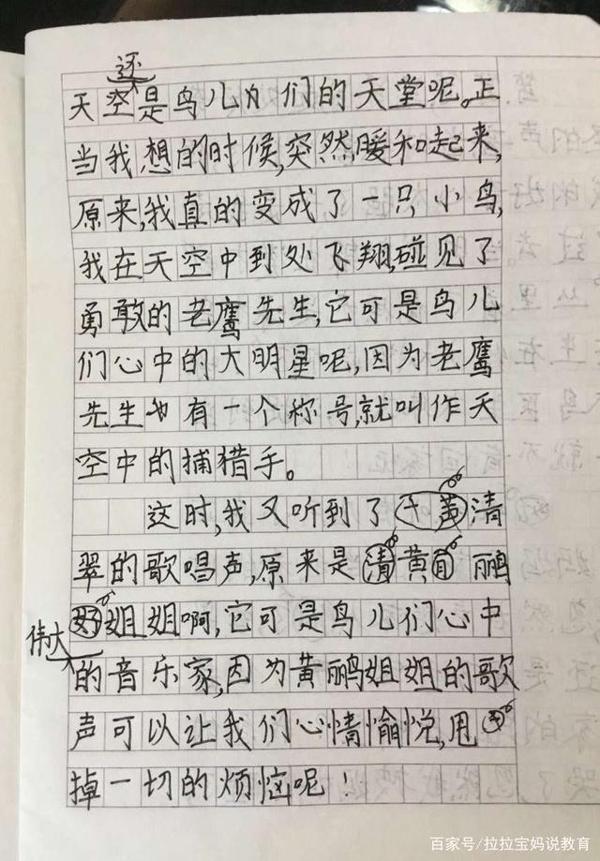 还
天空是鸟儿们的天堂呢。正
当我想的时候,突然,暖和起来,
原来,我真的变成了一只小鸟,
我在天空中到处飞翔,碰见了
勇敢的老鹰先生,它可是鸟儿
们心中的大明星呢,因为老鹰
先生也有一个称号,就叫作天
空中的捕猎手。
这时,我又听到了清
翠的歌唱声,原来是黄鹂
姐姐啊,它可是鸟儿们心中
伟大
的音乐家,因为黄鹂姐姐的歌
声可以让我们心情愉悦,甩
掉一切的烦恼呢!
百家号/拉拉宝妈说教育